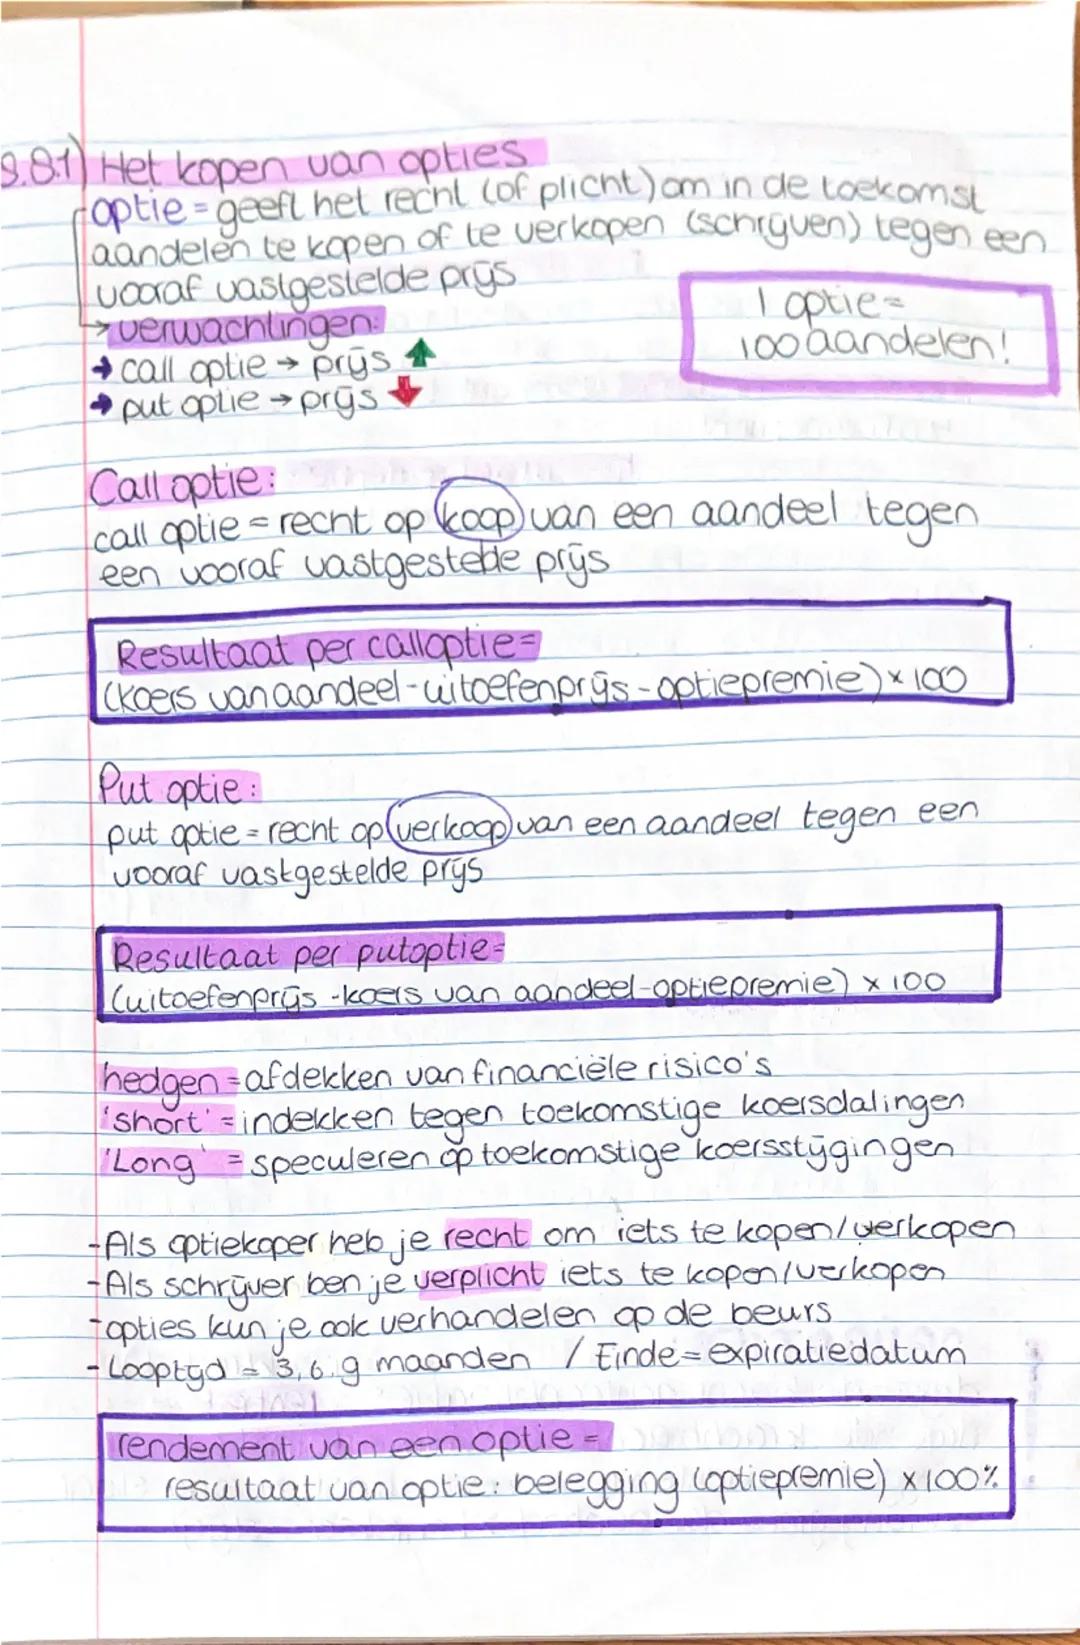 9.8.1) Het kopen van opties
optie = geeft het recht (of plicht) om in de toekomst
aandelen te kopen of te verkopen (schrijven) tegen een
vooraf vastgestelde prijs
→ verwachtingen:
→ call optie → prijs ↑
→ put optie → prijs ↓
1 optie =
100 aandelen!
Call optie:
call optie = recht op koop van een aandeel tegen
een vooraf vastgestelde prijs
Resultaat per calloptie =
(koers van aandeel - uitoefenprijs - optiepremie) × 100
Put optie:
put optie = recht op verkoop van een aandeel tegen een
vooraf vastgestelde prijs
Resultaat per putoptie =
(uitoefenprijs - koers van aandeel - optiepremie) × 100
hedgen = afdekken van financiële risico's
'short' = indekken tegen toekomstige koersdalingen
'Long' = speculeren op toekomstige koersstijgingen
- Als optiekoper heb je recht om iets te kopen/verkopen
- Als schrijver ben je verplicht iets te kopen/verkopen
- opties kun je ook verhandelen op de beurs
- Looptijd = 3, 6, 9 maanden / Einde = expiratiedatum
rendement van een optie =
resultaat van optie : belegging (optiepremie) × 100%